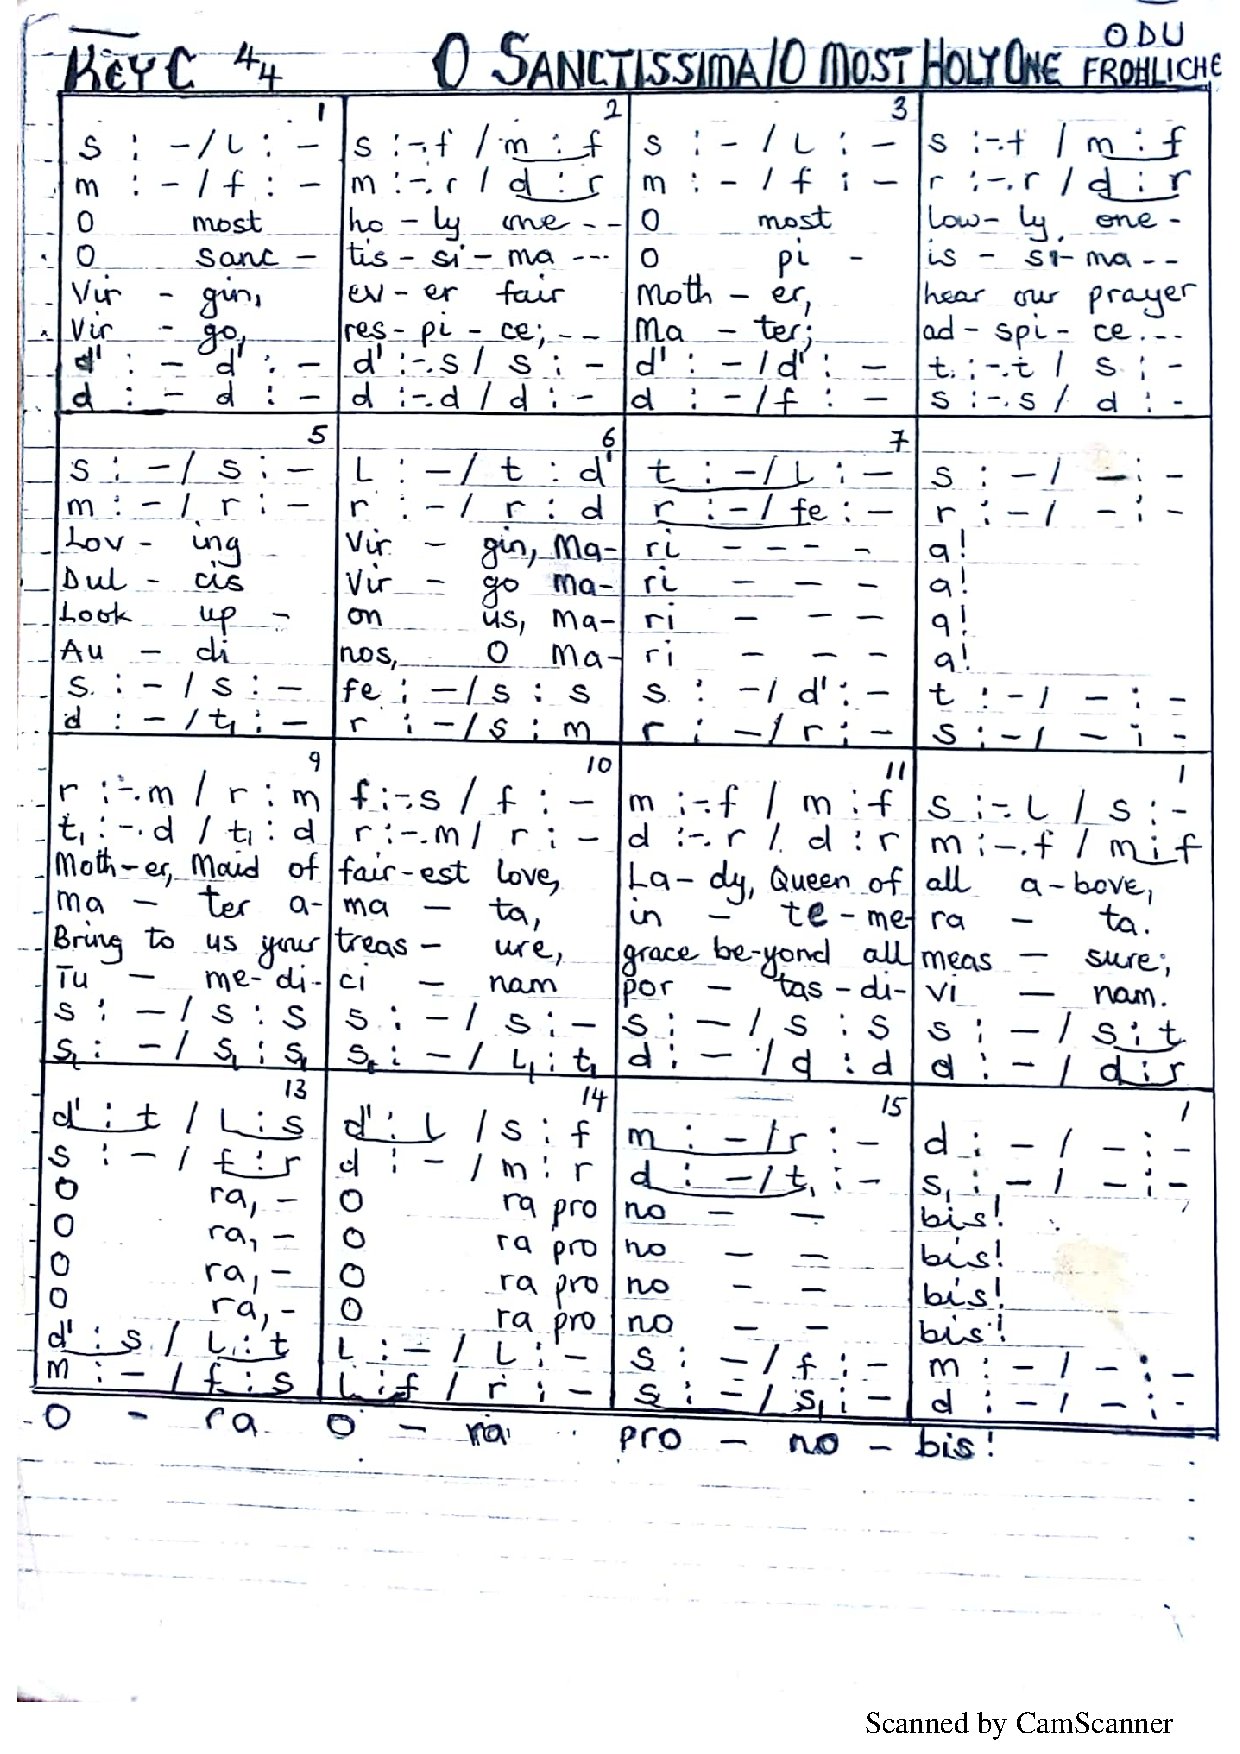 KEY C 4/4 O SANCTISSIMA/O MOST HOLY ONE ODU FROHLICHE
1 2 3
s : - / l : - s :-.f / m : f s : - / l : - s :-.f / m : f
m : - / f : - m :-.r / d : r m : - / f : - r :-.r / d : r
O most ho - ly one - - O most low - ly one -
O sanc - tis - si - ma --- O pi - is - si - ma - -
Vir - gin, ev - er fair Moth - er, hear our prayer
Vir - go, res - pi - ce; - - Ma - ter; ad - spi - ce...
d' : - d' : - d' :-.s / s : - d' : - / d' : - t :-.t / s : -
d : - d : - d :-.d / d : - d : - / f : - s :-.s / d : -
5 6 7
s : - / s : - L : - / t : d' t : - / L : - s : - / - : -
m : - / r : - r : - / r : d r : - / fe : - r : - / - : -
Lov - ing Vir - gin, Ma- ri - - - - a!
Dul - cis Vir - go ma- ri - - - a!
Look up - on us, ma- ri - - - a!
Au - di nos, O Ma- ri - - - a!
s : - / s : - fe : - / s : s s : - / d' : - t : - / - : -
d : - / t₁ : - r : - / s : m r : - / r : - s : - / - : -
9 10 11 1
r :-.m / r : m f :-.s / f : - m :-.f / m : f s :-.L / s : -
t₁ :-.d / t₁ : d r :-.m / r : - d :-.r / d : r m :-.f / m : f
Moth-er, Maid of fair-est love, La - dy, Queen of all a - bove,
ma - ter a- ma - ta, in - te - me- ra - ta.
Bring to us your treas - ure, grace be-yond all meas - sure;
Tu - me-di- ci - nam por - tas - di- vi - nam.
s : - / s : s s : - / s : - s : - / s : s s : - / s : t
s₁ : - / s₁ : s₁ s₁ : - / L₁ : t₁ d : - / d : d d : - / d : r
13 14 15 1
d' : t / L : s d' : L / s : f m : - / r : - d : - / - : -
s : - / f : r d : - / m : r d : - / t₁ : - s₁ : - / - : -
O ra, - O ra pro no - - bis!
O ra, - O ra pro no - - bis!
O ra, - O ra pro no - - bis!
O ra, - O ra pro no - - bis!
d' : s / L : t L : - / L : - s : - / f : - m : - / - : -
m : - / f : s L : f / r : - s : - / s₁ : - d : - / - : -
O - ra O - ra pro - no - bis!
Scanned by CamScanner